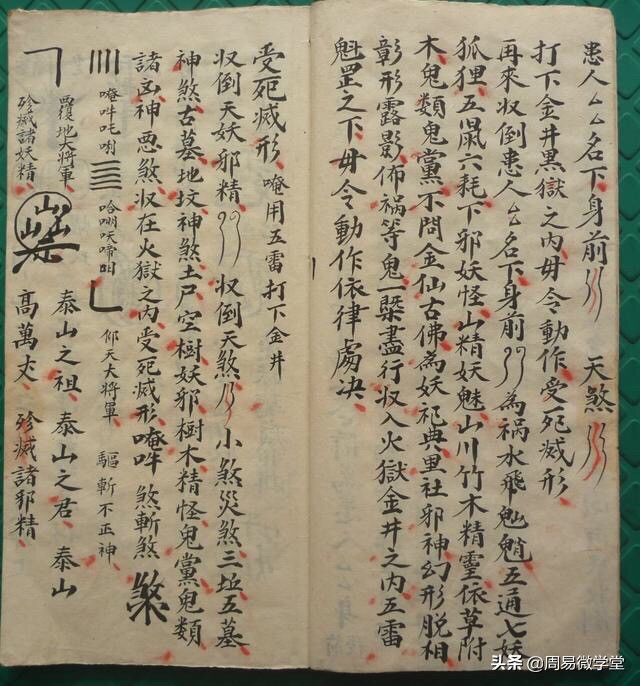 患人厶厶名下身前 天煞
打下金井黑獄之内毋令動作受死滅形
再來収倒患人厶名下身前 為祸水飛魈五通七妖
狐狸五鼠六耗下邪妖怪山精妖魅山川竹木精霊依草附
木鬼類鬼黨不問金仙古佛為妖祀典里社邪神幻形脱相
彰形露影佈祸等鬼一槩盡行収入火獄金井之内五雷
魁罡之下毋令動作依律處决
受死滅形 唵用五雷打下金井
収倒天妖邪精 収倒天煞 小煞災煞三坵五墓
神煞古墓地坟神煞土尸空樹妖邪樹木精怪鬼黨鬼類
諸凶神惡煞収在火獄之内受死滅形唵吽 煞斬煞 煞
唵吽吒唎 哈 㗭 仰天大將軍 驅斬不正神
覆地大將軍 泰山之祖 泰山之君 泰山
殄滅諸妖精 高萬丈 殄滅諸邪精
头条 @周易微学堂